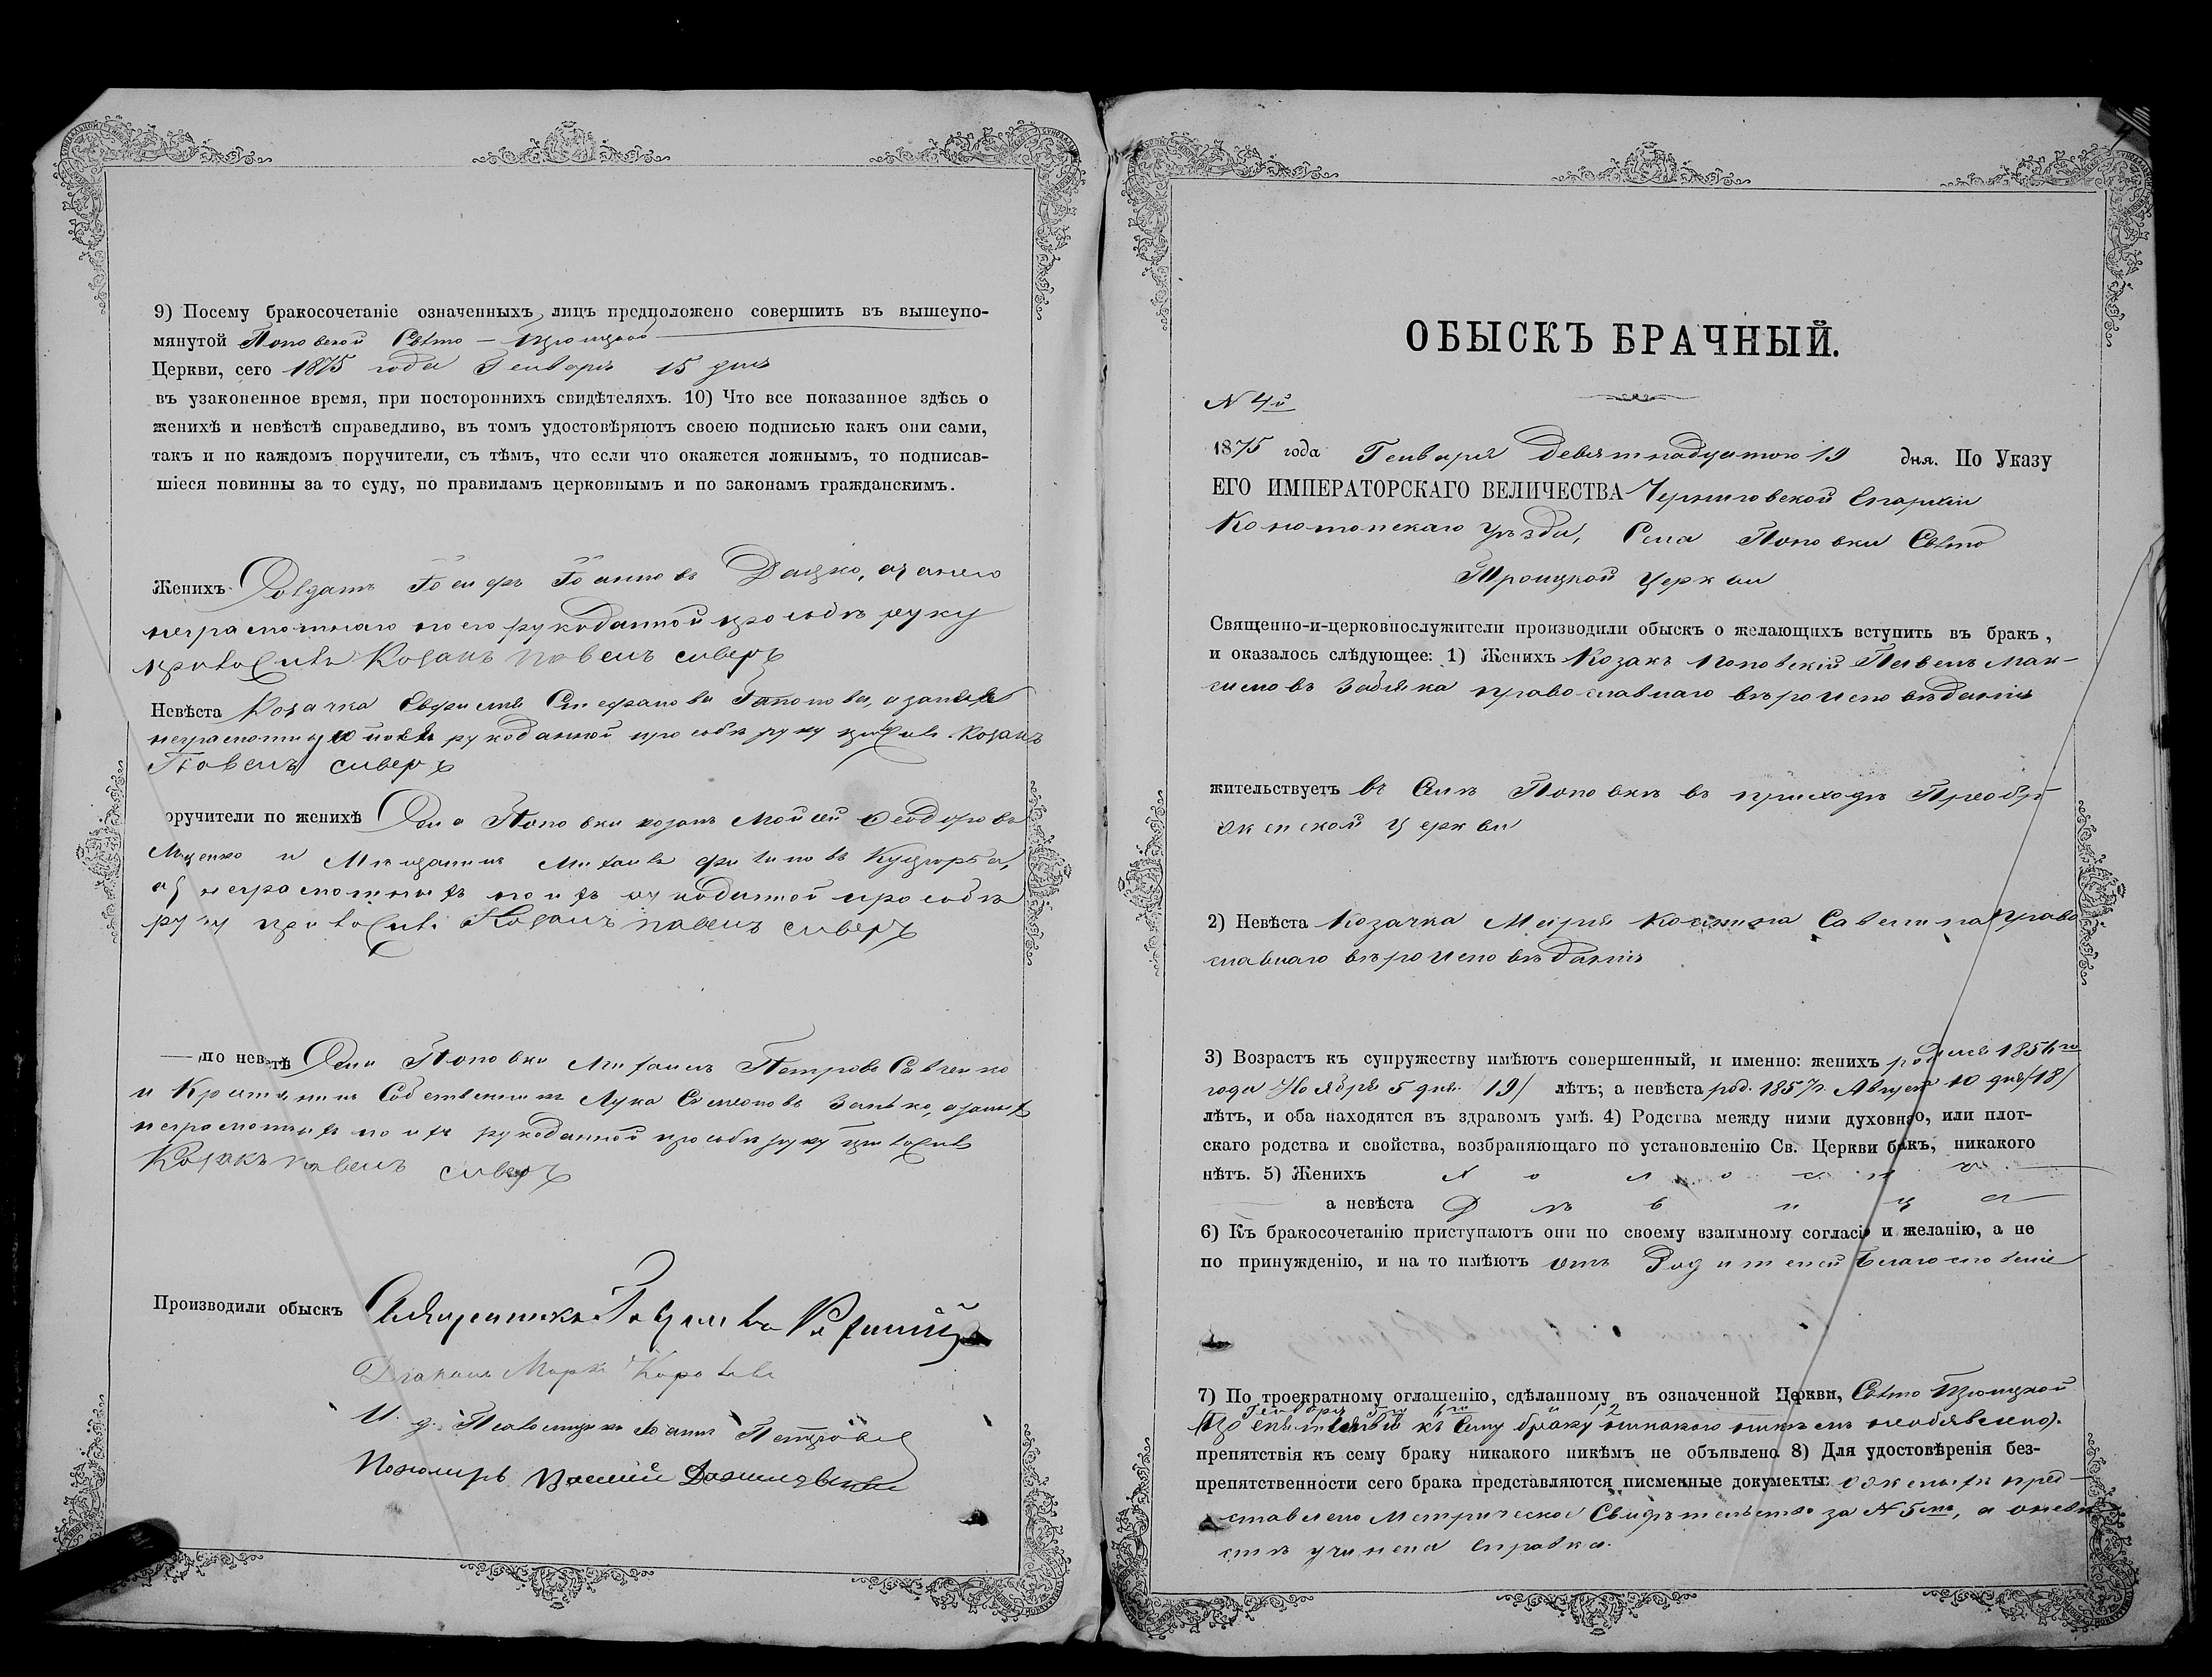 9) Посему бракосочетаніе означенныхъ лицъ предположено совершить въ вышеупо-
мянутой Поповской Свято - Троицкой
Церкви, сего 1875 года Генваря 15 дня
въ узаконенное время, при постороннихъ свидѣтеляхъ. 10) Что все показанное здѣсь о
женихѣ и невѣстѣ справедливо, въ томъ удостовѣряютъ своею подписью какъ они сами,
такъ и по каждомъ поручители, съ тѣмъ, что если что окажется ложнымъ, то подписав-
шіеся повинны за то суду, по правиламъ церковнымъ и по законамъ гражданскимъ.
Женихъ Солдатъ Іосифъ Іоанновъ Дацко, а за него
неграмотнаго по его рукоданной прозьбѣ руку
приложилъ Козакъ Павелъ Сиверъ
Невѣста Козачка Евфимія Стефанова
неграмотную по ея рукоданной прозьбѣ руку приложилъ Козакъ
Павелъ Сиверъ
оручители по женихѣ Села Поповки козакъ Мойсей Ѳеодоровъ
и Мѣщанинъ Михаилъ Филиповъ
неграмотныхъ по ихъ рукоданной прозьбѣ
руку приложилъ Козакъ Павелъ Сиверъ
по невѣстѣ Села Поповки Михаилъ Петровъ Савченко
и Крестьянинъ Собственникъ Лука Симеоновъ
неграмотныхъ по ихъ рукоданной прозьбѣ руку приложилъ
Козакъ Павелъ Сиверъ
Производили обыскъ Священникъ
Діаконъ Маркъ
И. д. Псаломщика Іоаннъ Петровъ
Пономарь
ОБЫСКЪ БРАЧНЫЙ.
N 4й
1875 года Генваря Девятнадцатого 19 дня. По Указу
ЕГО ИМПЕРАТОРСКАГО ВЕЛИЧЕСТВА Черниговской Епархіи
Конотопскаго уѣзда, Села Поповки Свято
Троицкой Церкви
Священно-и-церковнослужители производили обыскъ о желающихъ вступить въ бракъ,
и оказалось слѣдующее: 1) Женихъ Козакъ Поповскій Павелъ Мак-
симовъ Забіяка православнаго вѣроисповѣданія
жительствуетъ въ Селѣ Поповкѣ въ приходѣ Преобр
женской Церкви
2) Невѣста Козачка Марія Савенина право
славнаго вѣроисповѣданія
3) Возрастъ къ супружеству имѣютъ совершенный, и именно: женихъ родился 1856 го
года Ноября 5 дня. /19/ лѣтъ; а невѣста род. 1857 г. Августа 10 дня /18/
лѣтъ, и оба находятся въ здравомъ умѣ. 4) Родства между ними духовнаго, или плот-
скаго родства и свойства, возбраняющаго по установленію Св. Церкви бракъ, никакого
нѣтъ. 5) Женихъ Холостъ
а невѣста Дѣвица
6) Къ бракосочетанію приступаютъ они по своему взаимному согласію и желанію, а не
по принужденію, и на то имѣютъ отъ Родителей благословеніе
7) По троекратному оглашенію, сдѣланному въ означенной Церкви, Свято Троицкой
Генваря 5 го 6 го и 12
Препятствія къ сему браку никакого никѣмъ необявлено.
препятствія къ сему браку никакого никѣмъ не объявлено. 8) Для удостовѣренія без-
препятственности сего брака представляются писменные документы: о женихѣ пред-
ставлено Метрическое Свидѣтельство за N 5мъ, а о невѣ
стѣ учинена справка.